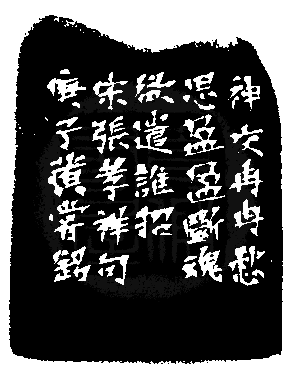 神交冉冉愁
思盈盈斷魂
欲遣誰招
宋張孝祥句
庚子黃嘗銘